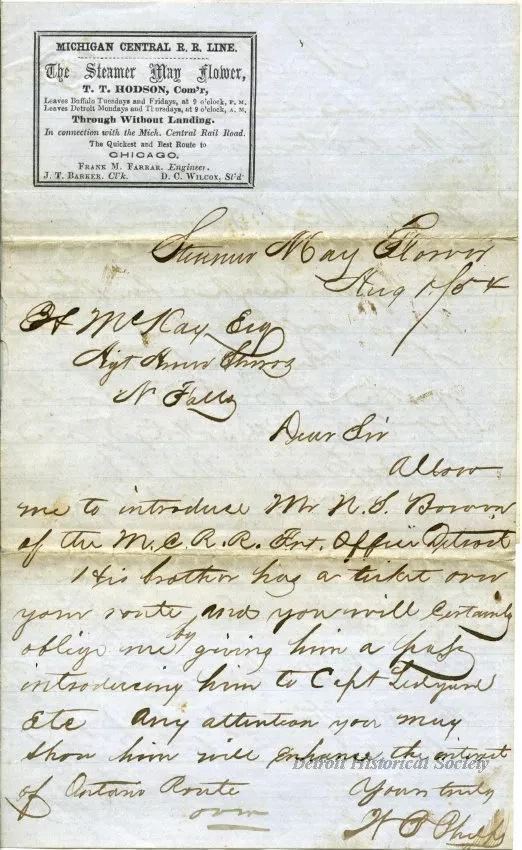 MICHIGAN CENTRAL R. R. LINE.
The Steamer May Flower,
T. T. HODSON, Com'r,
Leaves Buffalo Tuesdays and Fridays, at 9 o'clock, P. M.
Leaves Detroit Mondays and Thursdays, at 9 o'clock, A. M.
Through Without Landing.
In connection with the Mich. Central Rail Road.
The Quickest and Best Route to
CHICAGO.
FRANK M. FARRAR, Engineer.
J. T. BARKER, Cl'k. D. C. WILCOX, St'd
Steamer May Flower
Aug 1/54
McKay Esq
Agt
N Falls
Dear Sir
Allow
me to introduce Mr N. S.
of the M. C. R. R. Frt. Office Detroit
His brother has a ticket over
your route and you will certainly
oblige me by giving him a pass
introducing him to Capt Ledyard
Etc any attention you may
show him will enhance the interest
of Ontario Route Yours truly
Detroit Historical Society
over